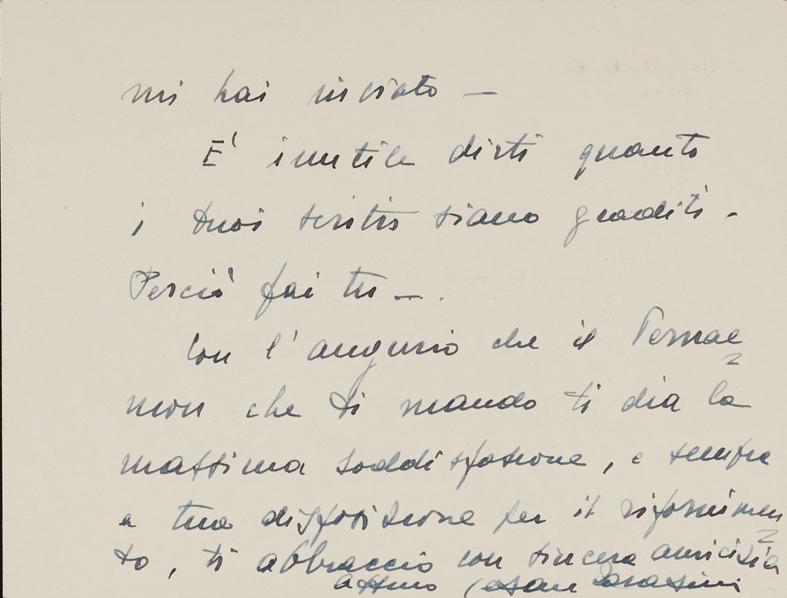 mi hai inviato —
E' inutile dirti quanto
i tuoi scritti siano graditi.
Perciò fai tu —.
Con l'augurio che il
mon che ti mando ti dia la
massima soddisfazione, e sempre
a tua disposizione per il rifornimen
to, ti abbraccio con sincera amicizia